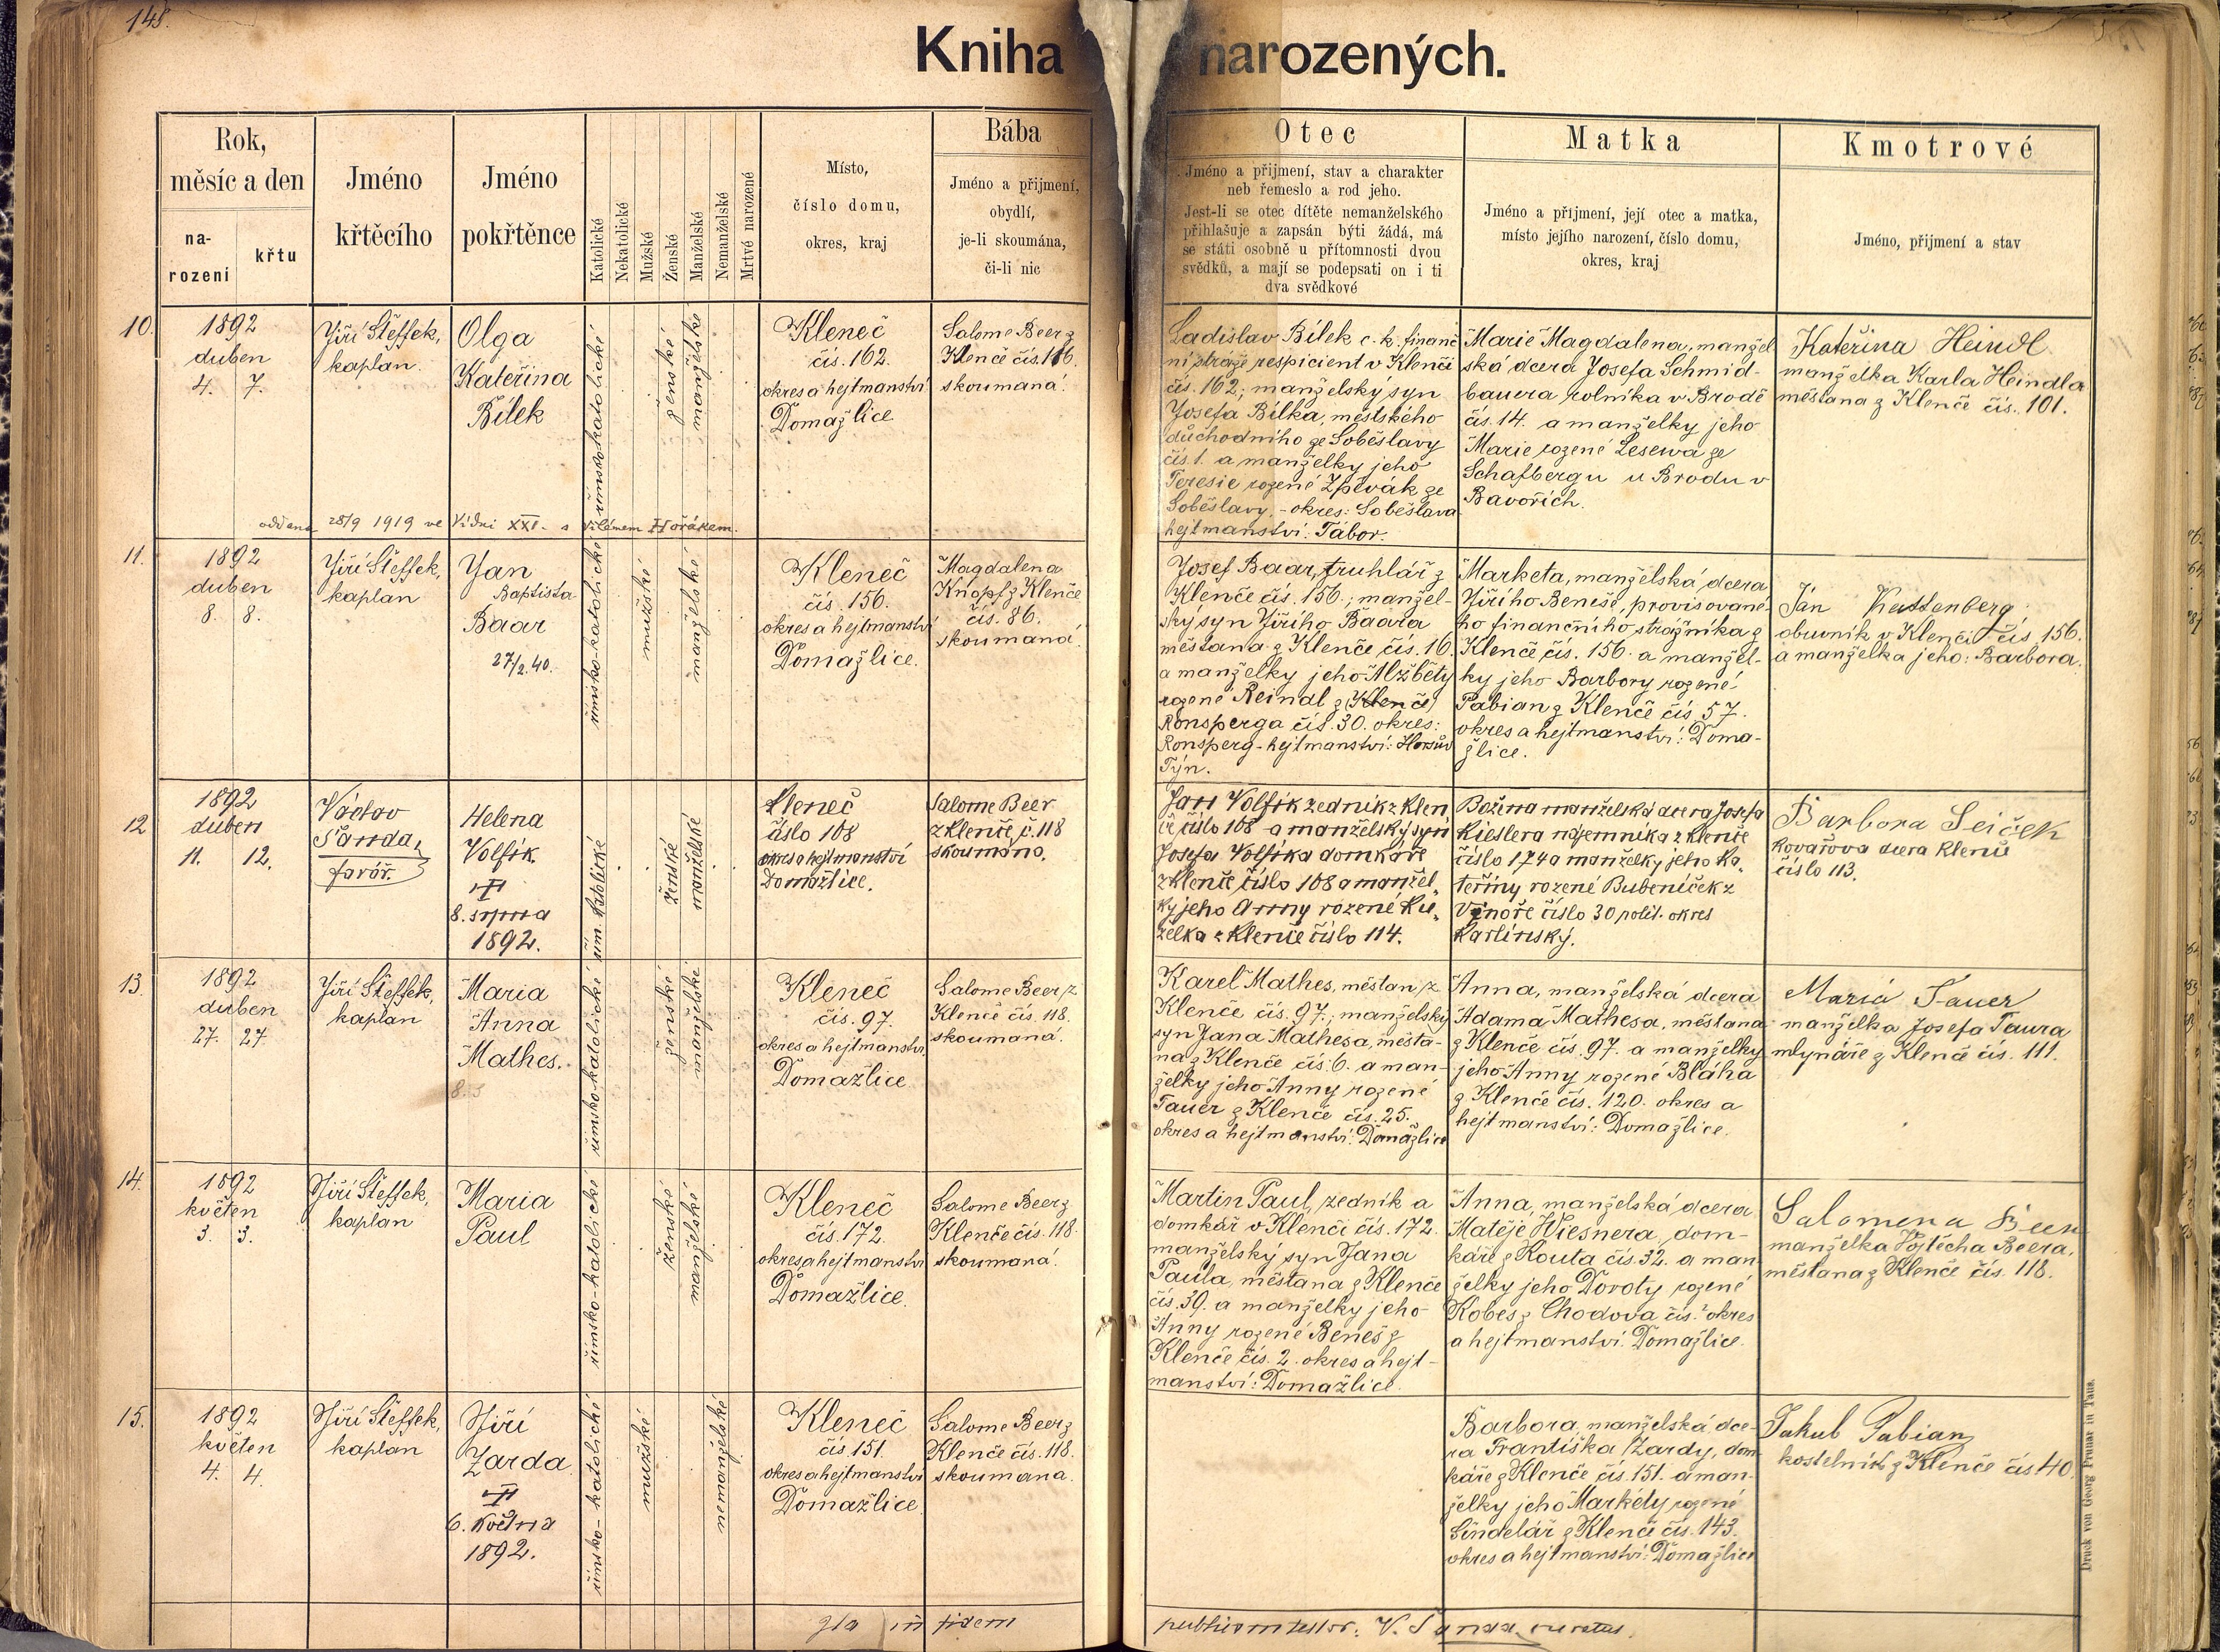 148.
Kniha narozených.
Rok,
měsíc a den
na-
rození
křtu
Jméno
křtěcího
Jméno
pokřtěnce
Katolické
Nekatolické
Mužské
Ženské
Manželské
Nemanželské
Mrtvé narozené
Místo,
číslo domu,
okres, kraj
Bába
Jméno a přijmení,
obydlí,
je-li skoumána,
či-li nic
Otec
Jméno a přijmení, stav a charakter
neb řemeslo a rod jeho.
Jest-li se otec dítěte nemanželského
přihlašuje a zapsán býti žádá, má
se státi osobně u přítomnosti dvou
svědků, a mají se podepsati on i ti
dva svědkové
Matka
Jméno a přijmení, její otec a matka,
místo jejího narození, číslo domu,
okres, kraj
Kmotrové
Jméno, přijmení a stav
10.
1892
duben
4. 7.
Jiří Šteffek,
kaplan.
Olga
Kateřina
Bílek
římsko-katolické
ženské
manželské
Kleneč
čís. 162.
okres a hejtmanství
Domažlice
Salome Beer z
Klenče čís. 116.
skoumaná.
Ladislav Bílek c. k. finanč
ní stráže respicient v Klenči
čís. 162; manželský syn
Josefa Bílka, městského
důchodního ze Soběslavy
čís. 1. a manželky jeho
Teresie rozené Zpěvák ze
Soběslavy. - okres: Soběslava
hejtmanství: Tábor.
Marie Magdalena, manžel
ská dcera Josefa Schmid-
bauera rolníka v Brodě
čís. 14. a manželky jeho
Marie rozené Lesewa ze
Schafbergu u Brodu v
Bavořích.
Kateřina Heindl
manželka Karla Heindla
měšťana z Klenče čís. 101.
oddána 28/9 1919 ve Vídni XXI. s Vilémem Hořákem.
11.
1892
duben
8. 8.
Jiří Šteffek,
kaplan
Jan
Baptista
Baar
27/2.40.
římsko-katolické
mužské
manželské
Kleneč
čís. 156.
okres a hejtmanství
Domažlice.
Magdalena
Knopf z Klenče
čís. 86.
skoumaná.
Josef Baar, truhlář z
Klenče čís. 156.; manžel-
ský syn Jiřího Baara
měšťana z Klenče čís. 16.
a manželky jeho Alžběty
rozené Reindl z (Klenče)
Ronsperga čís. 30. okres:
Ronsperg - hejtmanství: Horšův
Týn.
Marketa, manželská dcera
Jiřího Beneše, provisované-
ho finančního strážníka z
Klenče čís. 156. a manžel-
ky jeho Barbory rozené
Pabian z Klenče čís. 57.
okres a hejtmanství: Doma-
žlice.
Jan Kattenberg
obuvník v Klenči čís. 156.
a manželka jeho: Barbora.
12
1892
duben
11. 12.
Václav
Šanda,
farář.
Helena
Volfík
8. srpna
1892.
řím. katolické
ženské
manželské
Kleneč
číslo 108
okres a hejtmanství
Domažlice.
Salome Beer
z Klenče, č. 118
skoumána.
Jan Volfík zedník z Klen
če číslo 108 a manželský syn
Josefa Volfíka domkáře
z Klenče číslo 108 a manžel,
ky jeho Anny rozené Ku,
želka z Klenče číslo 114.
Božena manželská dcera Josefa
Kieslera nájemníka z Klenče
číslo 174 a manželky jeho Ka,
teřiny rozené Bubeníček z
Vinoře číslo 30 polit. okres
Karlínský.
Barbora Seiček
Kovářova dcera Klenče
číslo 113.
13.
1892
duben
27. 27.
Jiří Šteffek,
kaplan
Maria
Anna
Mathes.
římsko-katolické
ženské
manželské
Kleneč
čís. 97.
okres a hejtmanství
Domažlice
Salome Beer z
Klenče čís. 118.
skoumaná.
Karel Mathes, měšťan z
Klenče čís. 97.; manželský
syn Jana Mathesa, měšťa-
na z Klenče čís. 6. a man-
želky jeho Anny rozené
Tauer z Klenče čís. 25.
okres a hejtmanství: Domažlice
Anna, manželská dcera
Adama Mathesa, měšťana
z Klenče čís. 97. a manželky
jeho Anny rozené Bláha
z Klenče čís. 120. okres a
hejtmanství: Domažlice.
Maria Tauer
manželka Josefa Taura
mlynáře z Klenče čís. 111.
14.
1892
květen
3. 3.
Jiří Šteffek,
kaplan
Maria
Paul
římsko-katolické
ženské
manželské
Kleneč
čís. 172.
okres a hejtmanství
Domažlice.
Salome Beer z
Klenče čís. 118.
skoumaná.
Martin Paul, zedník a
domkář v Klenči čís. 172.
manželský syn Jana
Paula, měšťana z Klenče
čís. 39. a manželky jeho
Anny rozené Beneš z
Klenče čís. 2. okres a hejt-
manství: Domažlice.
Anna, manželská dcera
Matěje Wiesnera, dom-
káře z Kouta čís. 32. a man
želky jeho Doroty rozené
Kobes z Chodova čís. ? okres
a hejtmanství: Domažlice.
Salomena Beer
manželka Vojtěcha Beera,
měšťana z Klenče čís. 118.
15.
1892
květen
4. 4.
Jiří Šteffek,
kaplan
Jiří
Žarda
6. Května
1892.
římsko-katolické
mužské
nemanželské
Kleneč
čís. 151.
okres a hejtmanství
Domažlice
Salome Beer z
Klenče čís. 118.
skoumana.
Barbora, manželská dce-
ra Františka Žardy, dom
káře z Klenče čís. 151. a man-
želky jeho Markéty rozené
Šindelář z Klenče čís. 143.
okres a hejtmanství: Domažlice
Jakub Pabian,
kostelník z Klenče čís 40.
Ita in fidem publicam testor: V. Šanda, curatus.
Druck von Georg Prunar in Taus.